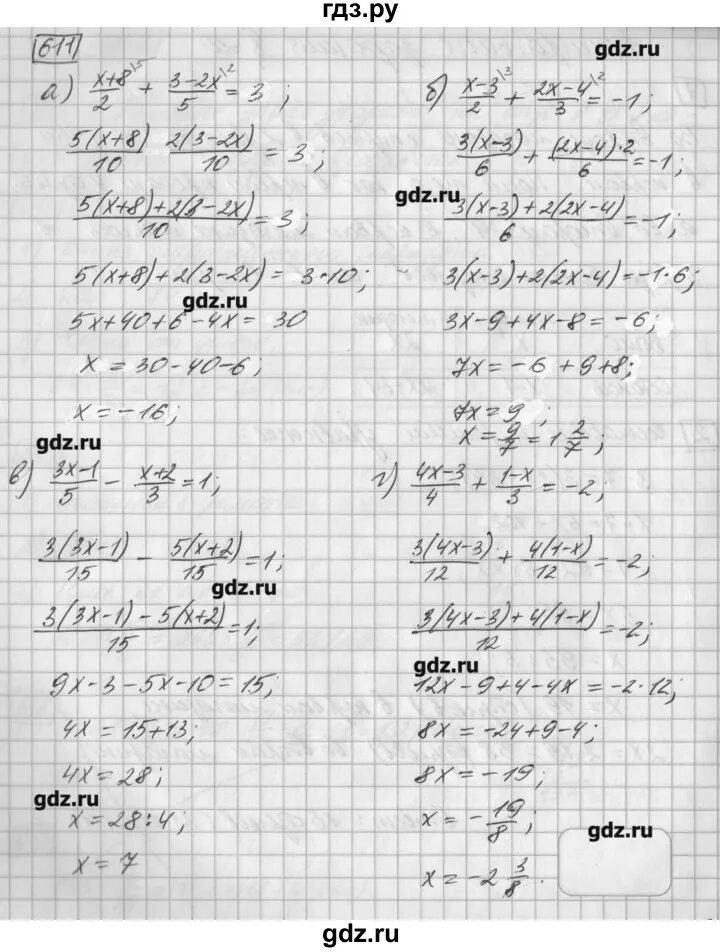 гдз.ру
611
gdz.ru
а) (x+8)/2 \5 + (3-2x)/5 \2 = 3;
5(x+8)/10 2(3-2x)/10 = 3;
(5(x+8)+2(3-2x))/10 = 3;
5(x+8)+2(3-2x) = 3·10;
gdz.ru
5x+40+6-4x = 30
x = 30-40-6;
x = -16;
б) (x-3)/2 \3 + (2x-4)/3 \2 = -1;
3(x-3)/6 + (2x-4)·2/6 = -1;
gdz.ru
(3(x-3)+2(2x-4))/6 = -1;
3(x-3)+2(2x-4) = -1·6;
3x-9+4x-8 = -6;
7x = -6+9+8;
7x = 9
x = 9/7 = 1 2/7;
gdz.ru
в) (3x-1)/5 - (x+2)/3 = 1;
3(3x-1)/15 - 5(x+2)/15 = 1;
gdz.ru
(3(3x-1)-5(x+2))/15 = 1;
9x-3-5x-10 = 15;
4x = 15+13;
4x = 28;
gdz.ru
x = 28:4;
x = 7
г) (4x-3)/4 + (1-x)/3 = -2;
3(4x-3)/12 + 4(1-x)/12 = -2;
(3(4x-3)+4(1-x))/12 = -2;
gdz.ru
12x-9+4-4x = -2·12;
8x = -24+9-4;
8x = -19;
x = -19/8;
gdz.ru
x = -2 3/8.